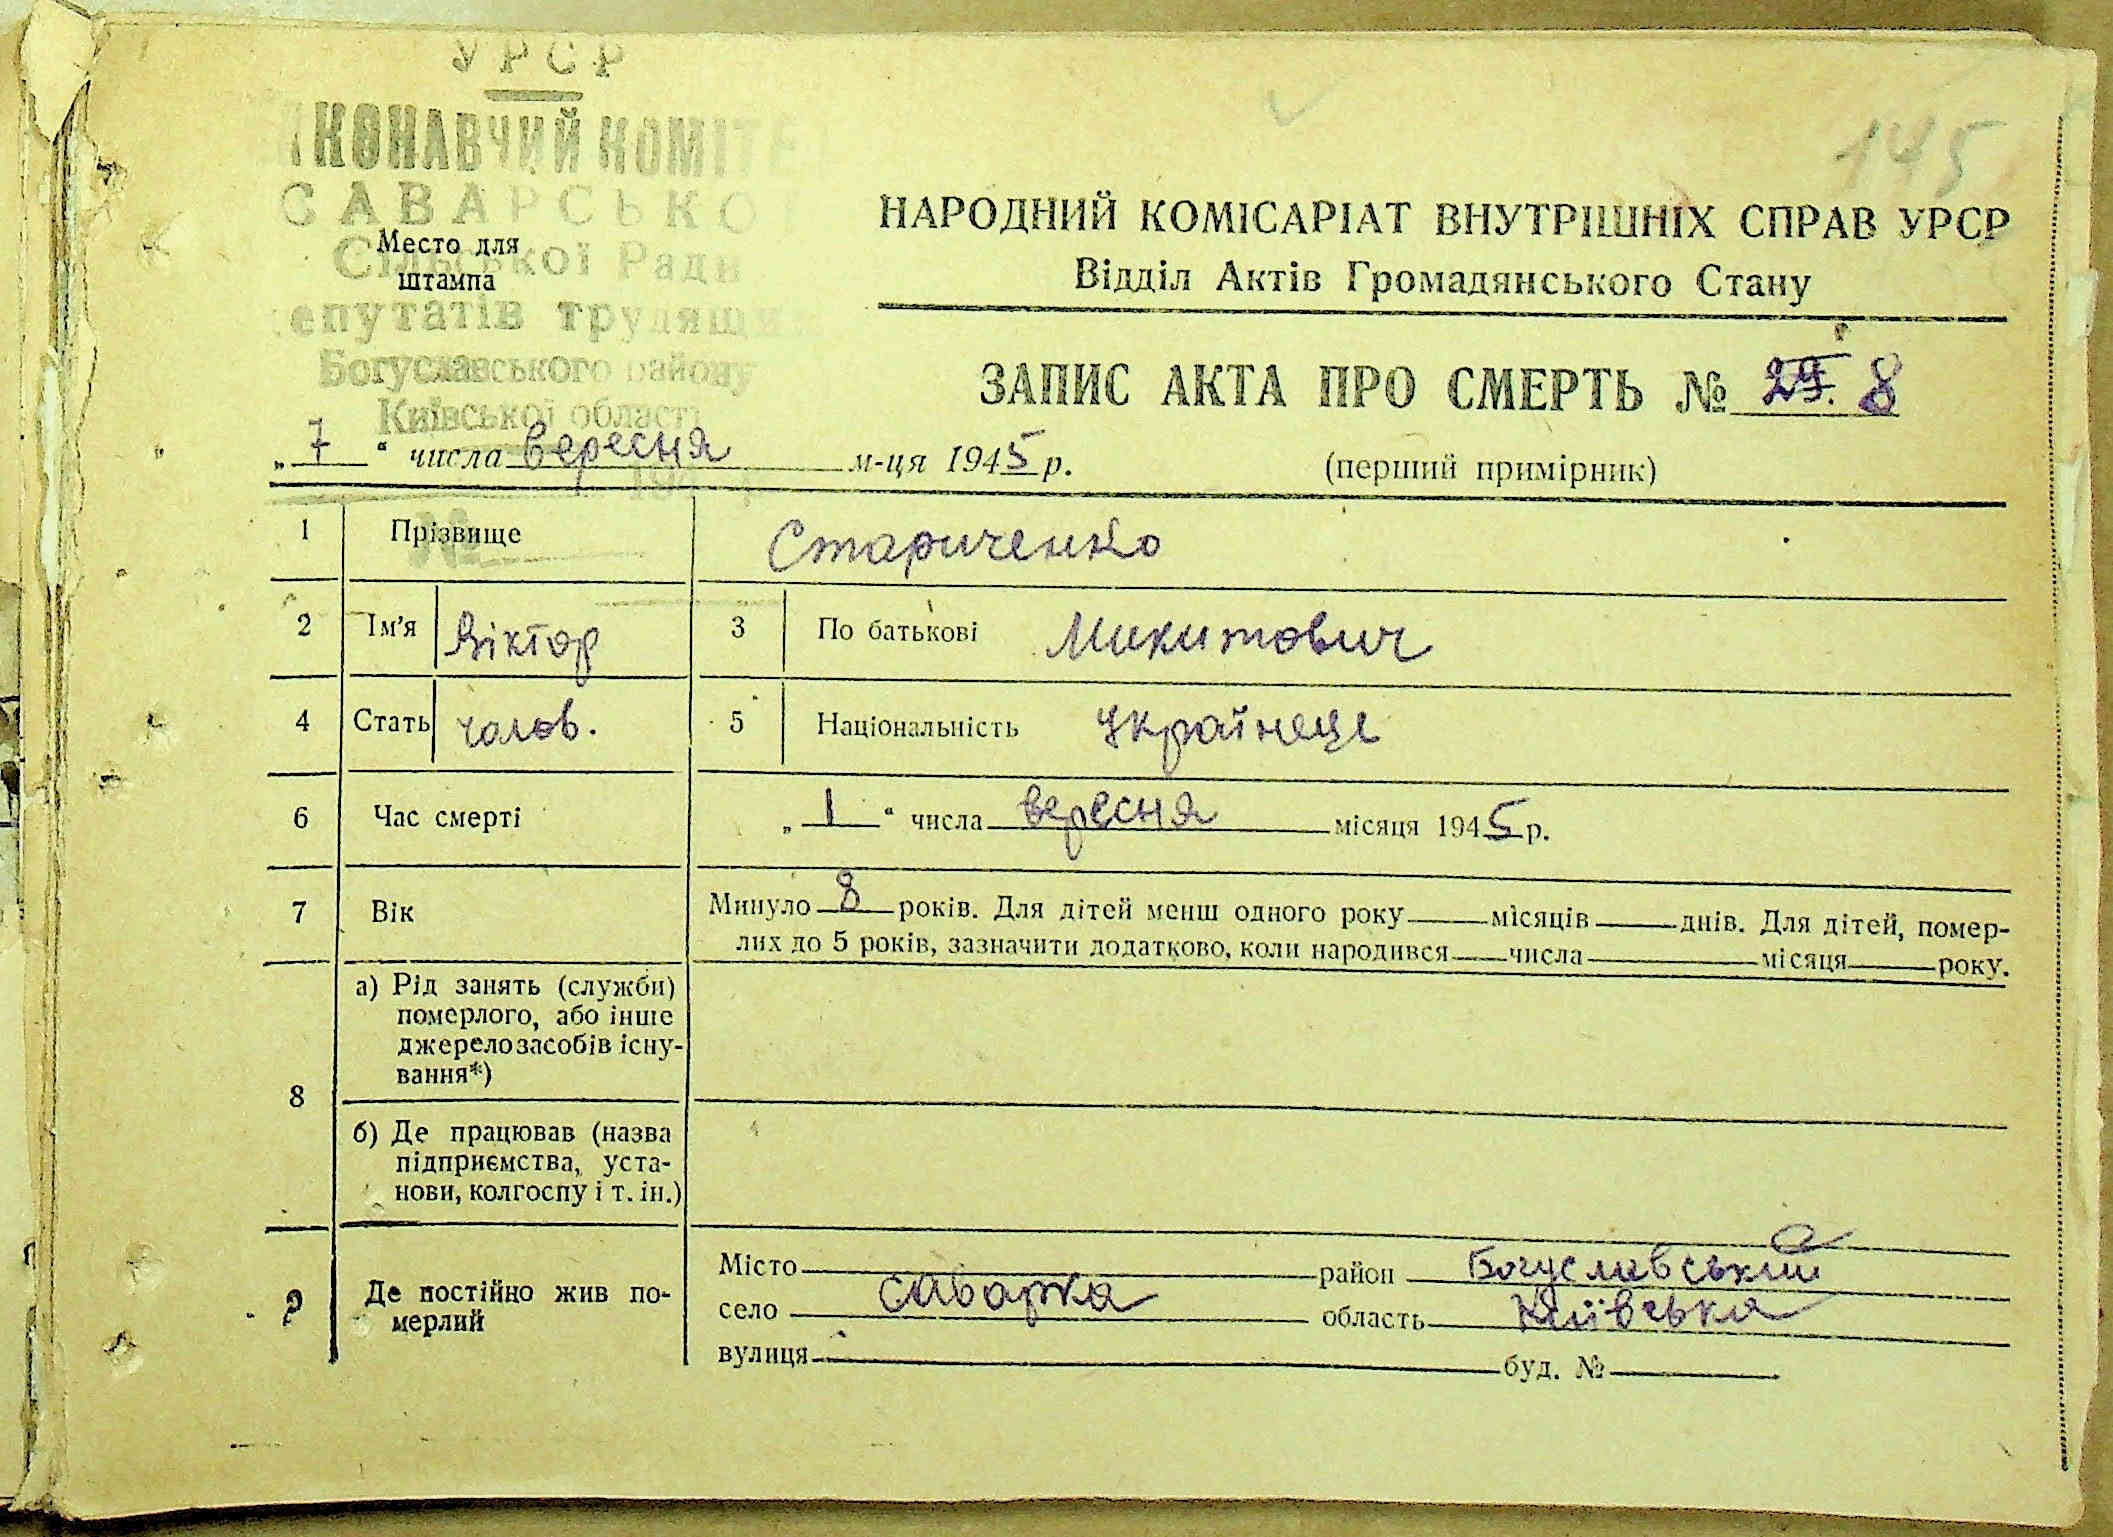 УРСР
КОНАВЧИЙ КОМІТЕ
САВАРСЬКО
Сільської Ради
епутатів трудящ
Богуславського району
Київської області
Место для
штампа
145
НАРОДНИЙ КОМІСАРІАТ ВНУТРІШНІХ СПРАВ УРСР
Відділ Актів Громадянського Стану
ЗАПИС АКТА ПРО СМЕРТЬ № 29. 8
„ 7 “ числа вересня м-ця 1945 р.
(перший примірник)
№
1 Прізвище Стариченко
2 Ім'я Віктор 3 По батькові Микитович
4 Стать чолов. 5 Національність Українець
6 Час смерті „ 1 “ числа вересня місяця 1945 р.
7 Вік Минуло 8 років. Для дітей менш одного року місяців днів. Для дітей, помер-
лих до 5 років, зазначити додатково, коли народився числа місяця року.
8 а) Рід занять (служби)
померлого, або інше
джерело засобів існу-
вання*)
б) Де працював (назва
підприємства, уста-
нови, колгоспу і т. ін.)
9 Де постійно жив по-
мерлий
Місто район Богуславський
село Саварка область Київська
вулиця буд. №